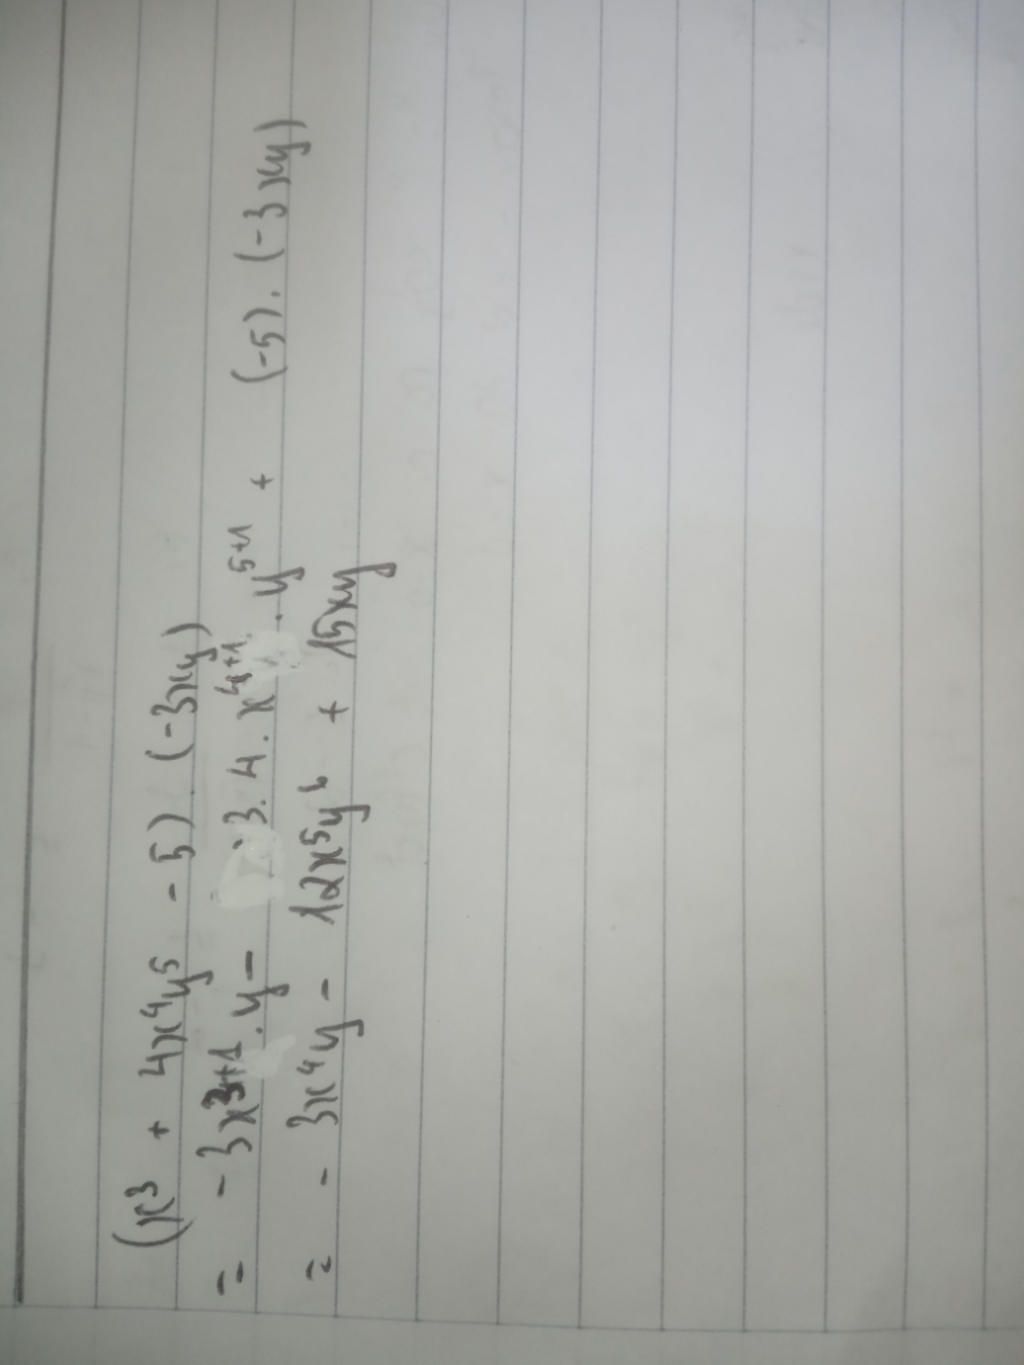 (x³ + 4x⁴y⁵ - 5) . (-3xy)
= - 3x³⁺¹ . y - 3 . 4 . x⁴⁺¹ . y⁵⁺¹ + (-5) . (-3xy)
= - 3x⁴y - 12x⁵y⁶ + 15xy